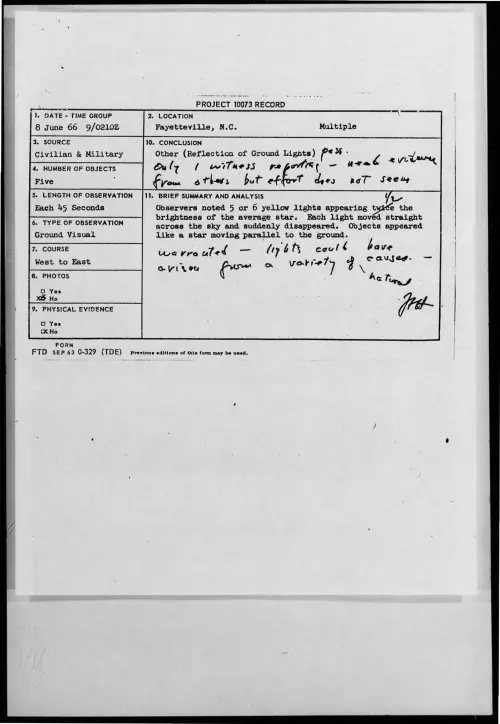 PROJECT 10073 RECORD
1. DATE - TIME GROUP
8 June 66 9/0210Z
2. LOCATION
Fayetteville, N.C. Multiple
3. SOURCE
Civilian & Military
4. NUMBER OF OBJECTS
Five
5. LENGTH OF OBSERVATION
Each 45 Seconds
6. TYPE OF OBSERVATION
Ground Visual
7. COURSE
West to East
8. PHOTOS
□ Yes
☒ No
9. PHYSICAL EVIDENCE
□ Yes
☒ No
10. CONCLUSION
Other (Reflection of Ground Lights) poss.
Only 1 witness reporting - weak evidence
from others but effort does not seem
11. BRIEF SUMMARY AND ANALYSIS
1/2
Observers noted 5 or 6 yellow lights appearing twice the
brightness of the average star. Each light moved straight
across the sky and suddenly disappeared. Objects appeared
like a star moving parallel to the ground.
warranted - lights could have
arisen from a variety of causes. -
natural
JAH
FORM
FTD SEP 63 0-329 (TDE) Previous editions of this form may be used.